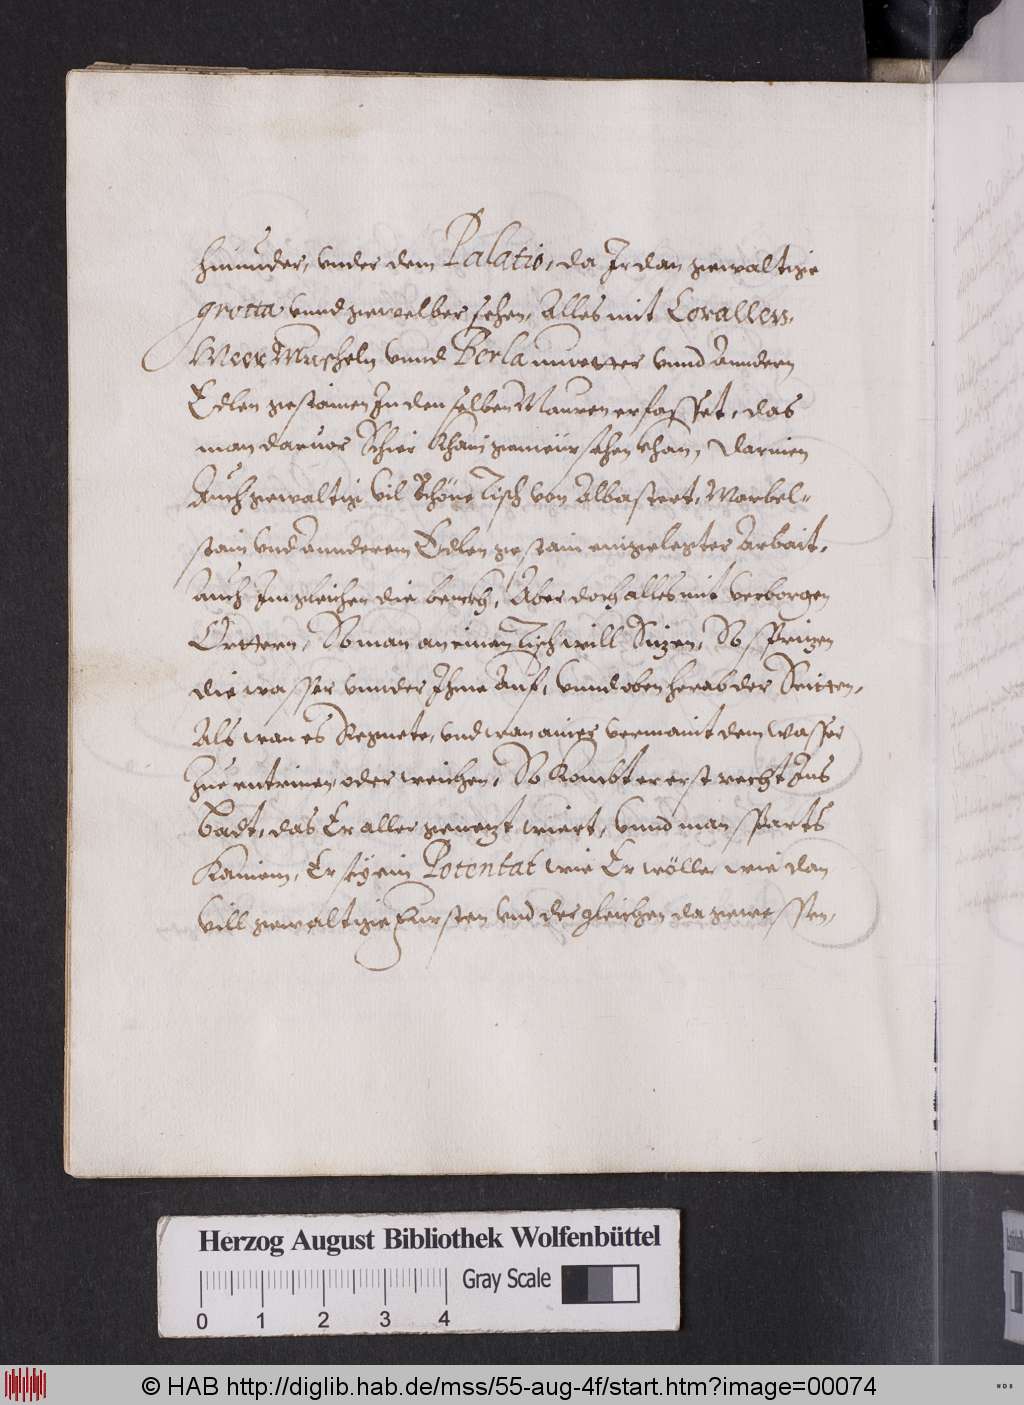 hinunder, vnder dem Palatio, da Ir dan gewaltige
grotta vnnd gewelber sehen, Alles mit Corallen,
Meer Muscheln vnnd Berla muetter vnnd Anndern
Edlen gestainen In den selben Mauren erfasset, das
man daruor Schier khain gemeür sehen khan, darinen
Auch gewaltig vil Schöne Tisch von Albastert, Marbel-
stain vnd Annderem Edlen gestain eingelegter Arbait,
Auch Imgleichen die benckh, Aber doch alles mit verborgen
Orttern, So man an einen Tisch will Sitzen, So spritzen
die wasser vnnder Ihme Auf, vnnd oben herab der Seitten,
Als wan es Regnete, vnd wan ainer vermaint dem wasser
Zue entrinen, oder weichen, So kombt er erst recht Ins
badt, das Er aller genetzt wiert, vnnd man sparts
kainem, Er sey ein Potentat wie Er wölle, wie dan
vill gewaltige Fursten vnd der gleichen da gewessen,
Herzog August Bibliothek Wolfenbüttel
Gray Scale
0 1 2 3 4
© HAB http://diglib.hab.de/mss/55-aug-4f/start.htm?image=00074